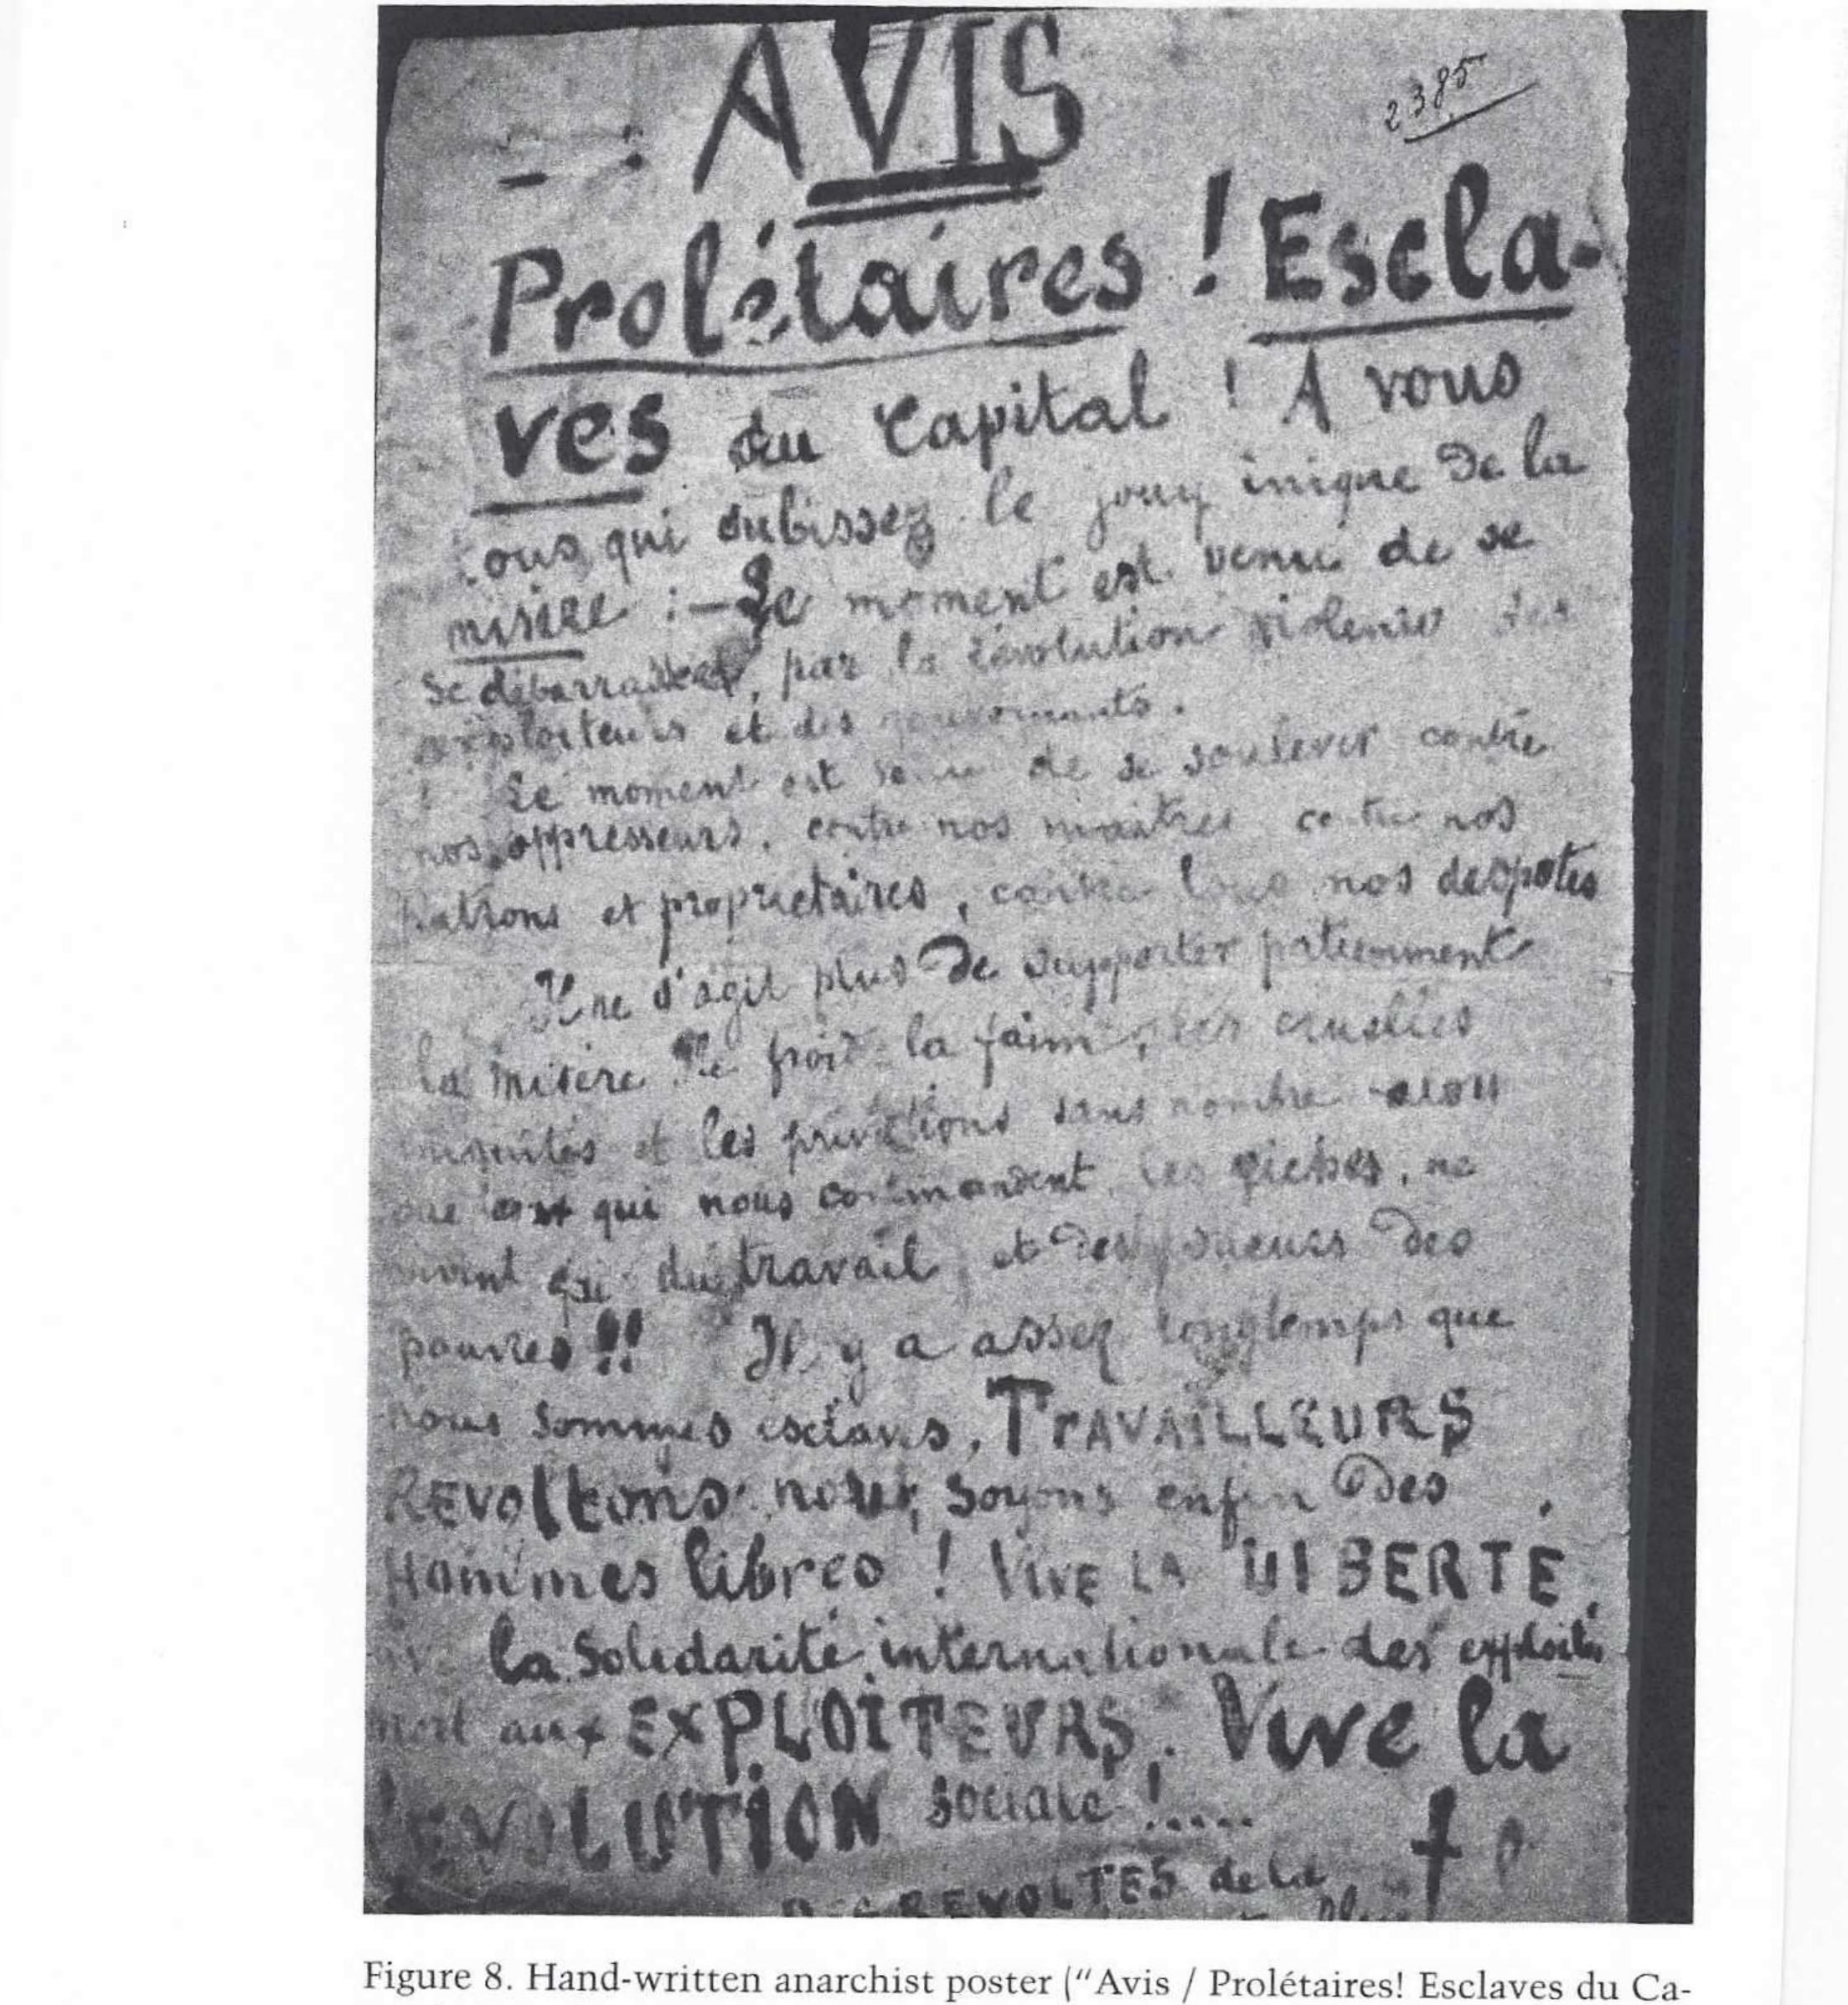 AVIS
2385
Prolétaires ! Escla-
ves du Capital ! A vous
tous qui subissez le joug inique de la
misère : - Le moment est venu de se
se débarrasser, par la révolution violente des
exploiteurs et des gouvernants.
! Le moment est venu de se soulever contre
nos oppresseurs, contre nos maitres contre nos
patrons et proprietaires, contre tous nos despotes
Il ne s'agit plus de supporter patiemment
la misère le froid la faim, les cruelles
iniquités et les privations sans nombre alors
que ceux qui nous commandent, les riches, ne
vivent que du travail et des sueurs des
pauvres !! Il y a assez longtemps que
nous sommes esclaves, TRAVAILLEURS
REvoltons-nous, soyons enfin des
Hommes libres ! VIVE LA LIBERTÉ,
la Solidarité internationale des exploités
mort aux EXPLOITEURS, Vive la
REVOLUTION sociale !.....
REVOLTES de la
Figure 8. Hand-written anarchist poster (“Avis / Prolétaires! Esclaves du Ca-